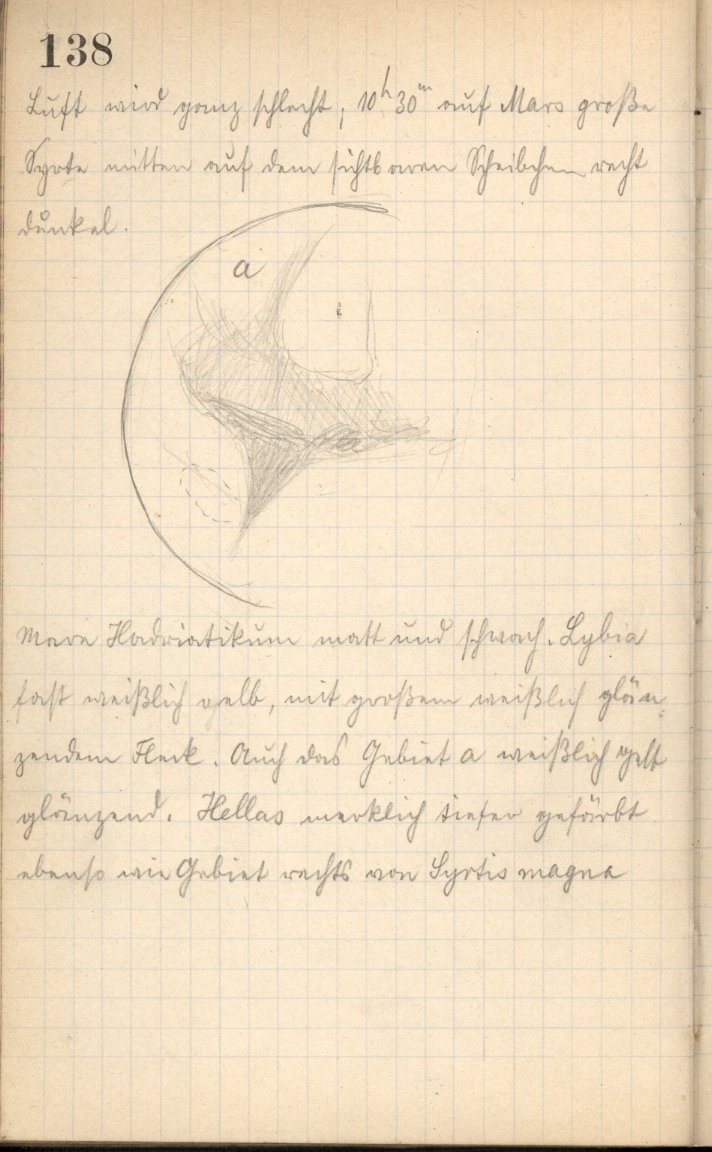 138
Luft wird ganz schlecht, 10h30m auf Mars große
Syrte mitten auf dem sichtbaren Scheibchen recht
dunkel.
a
Mare Hadriatikum matt und schwach. Lybia
fast weißlich gelb, mit großem weißlich glän-
zendem Fleck. Auch das Gebiet a weißlich gelb
glänzend. Hellas merklich tiefer gefärbt
ebenso wie Gebiet rechts von Syrtis magna